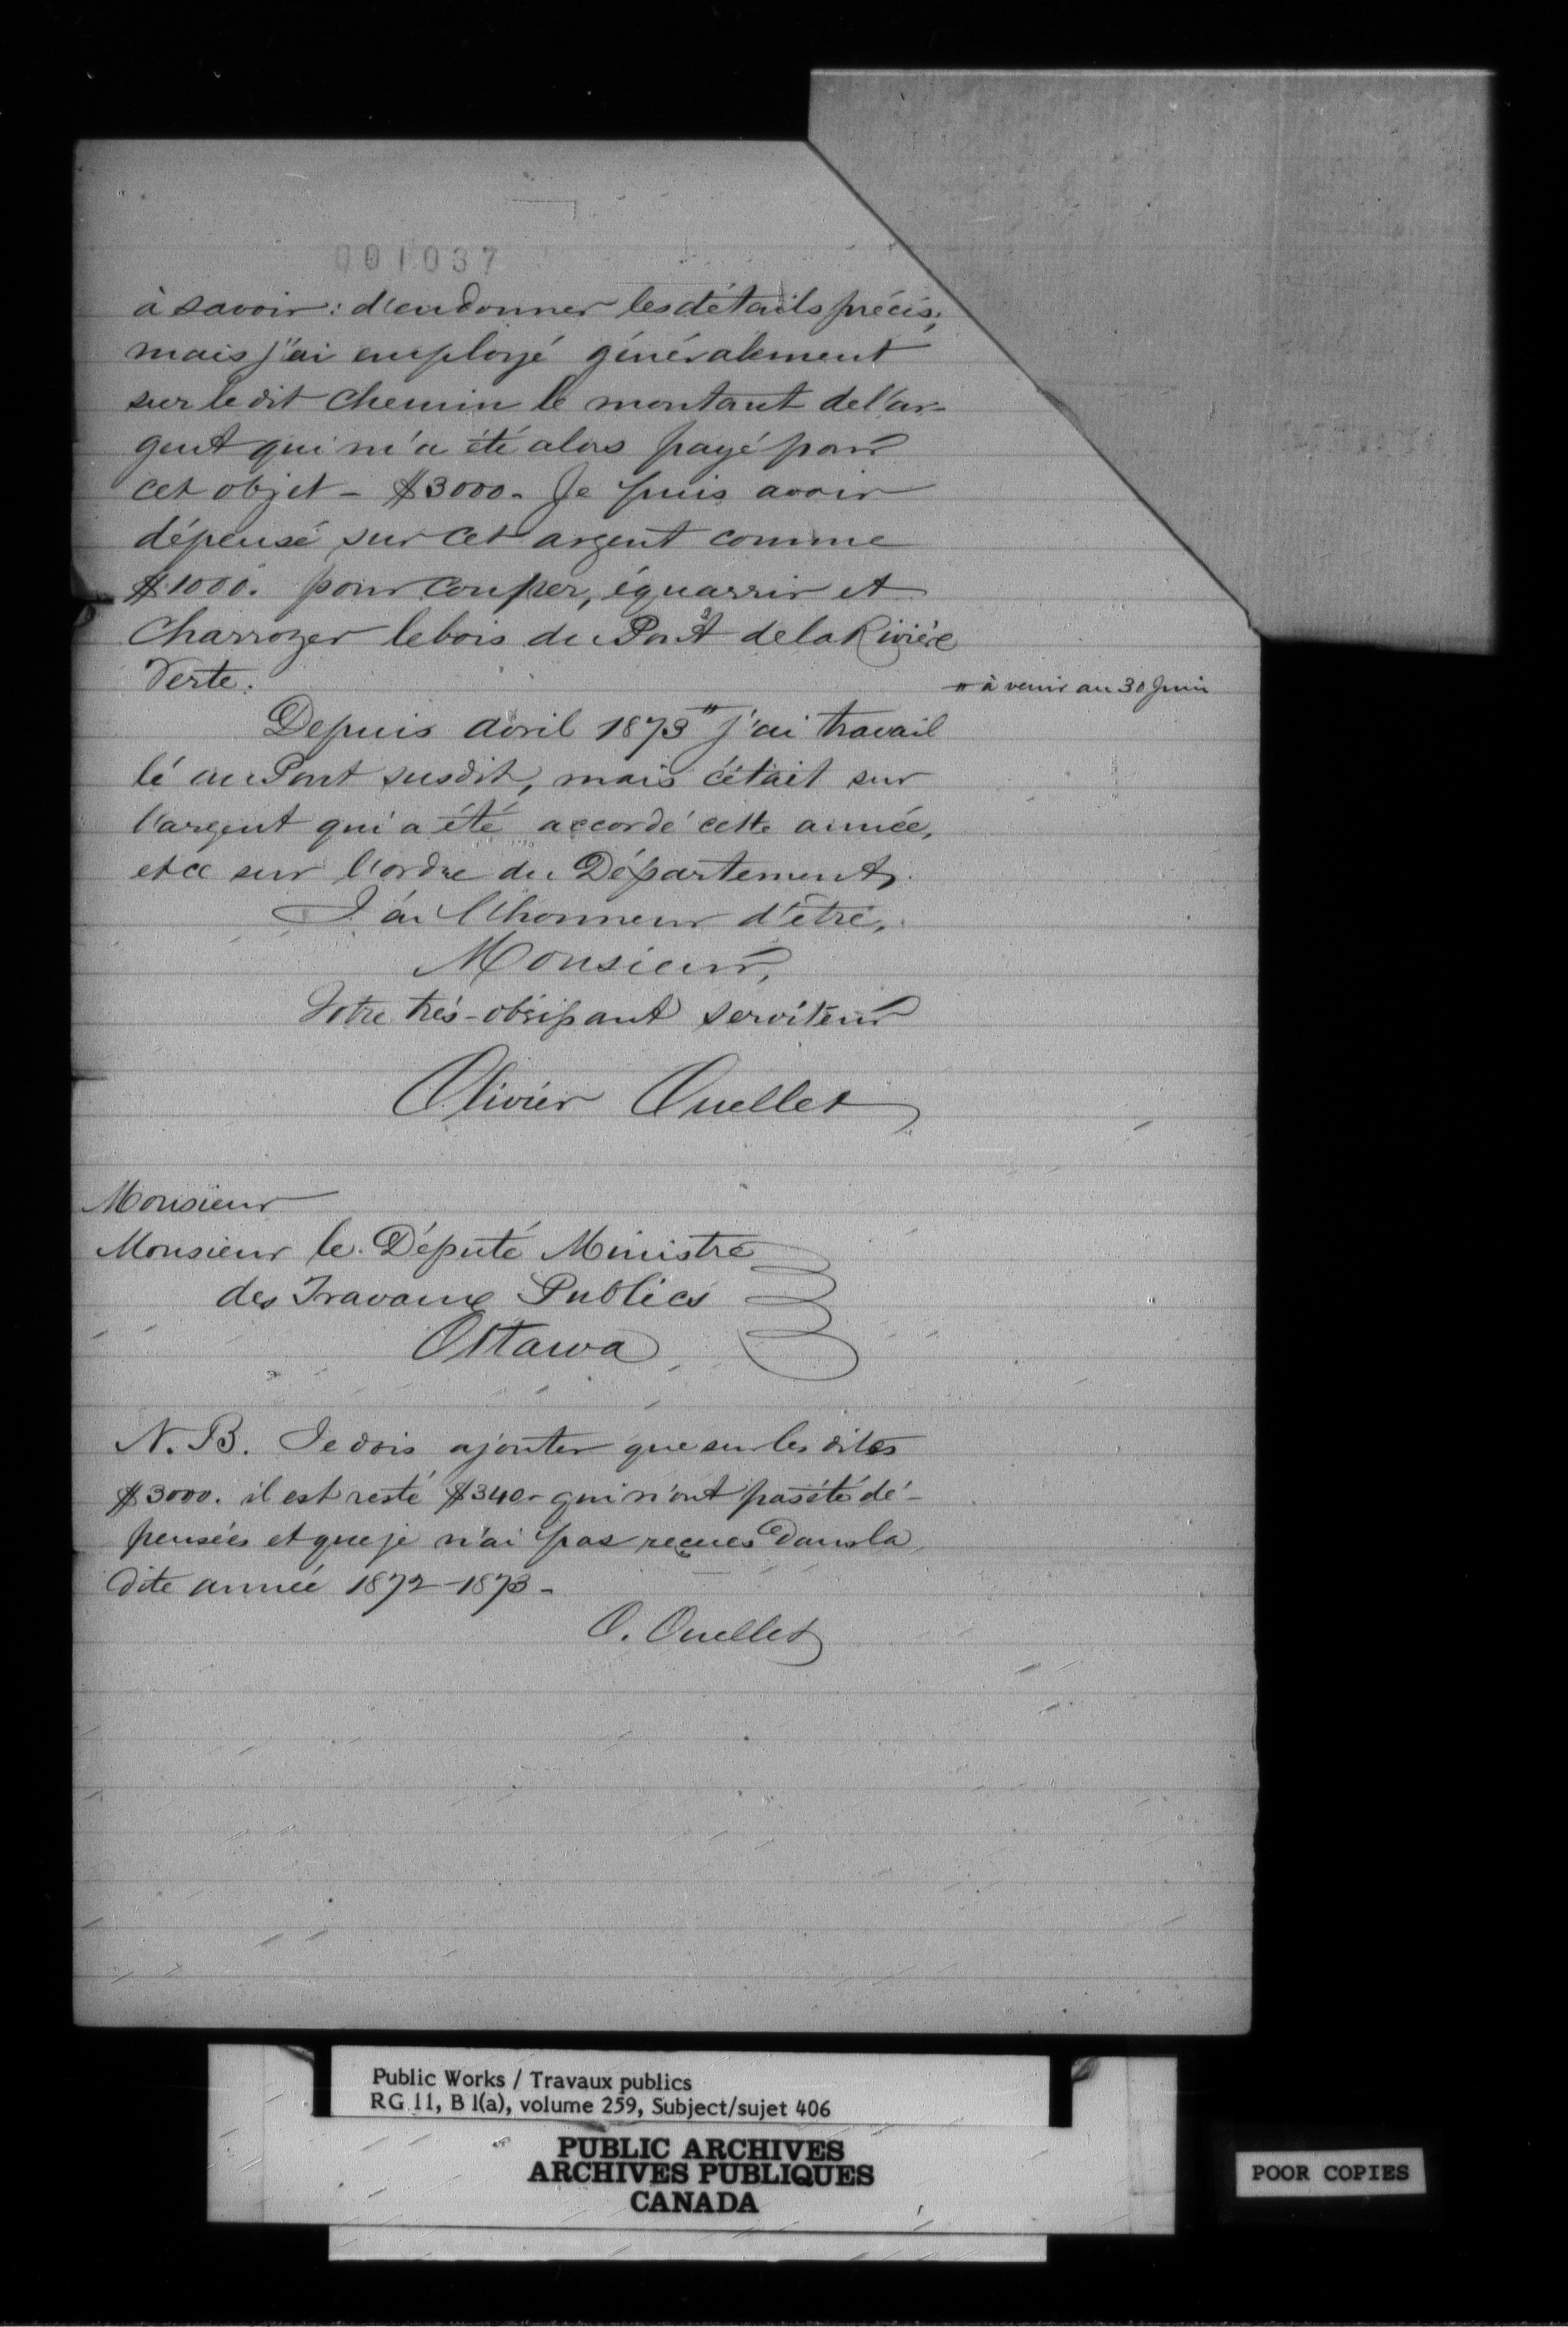 001037
à savoir: d'en donner les détails précis;
mais j'ai employé généralement
sur le dit chemin le montant de l'ar-
gent qui m'a été alors payé pour
cet objet - $3000. Je puis avoir
dépensé sur cet argent comme
$1000. pour couper, équarrir et
charroyer le bois du Pont de la Rivière
Verte.
" à venir au 30 Juin
Depuis Avril 1873 " j'ai travail
lé au Pont susdit, mais c'était sur
l'argent qui a été accordé cette année,
et ce sur l'ordre du Département.
J'ai l'honneur d'être,
Monsieur,
Votre très-obéissant serviteur
Olivier Ouellet
Monsieur
Monsieur le Député Ministre
des Travaux Publics
Ottawa
N.B. Je dois ajouter que sur les dites
$3000. il est resté $340. qui n'ont pas été dé-
pensées et que je n'ai pas reçues dans la
dite année 1872-1873-
O. Ouellet
Public Works / Travaux publics
RG 11, B 1(a), volume 259, Subject/sujet 406
PUBLIC ARCHIVES
ARCHIVES PUBLIQUES
CANADA
POOR COPIES